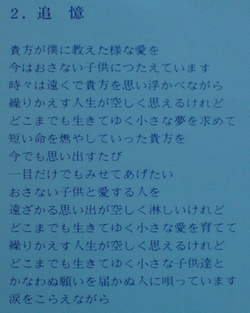 2．追　憶
貴方が僕に教えた様な愛を
今はおさない子供につたえています
時々は遠くで貴方を思い浮かべながら
繰りかえす人生が空しく思えるけれど
どこまでも生きてゆく小さな夢を求めて
短い命を燃やしていった貴方を
今でも思い出すたび
一目だけでもみせてあげたい
おさない子供と愛する人を
遠ざかる思い出が空しく淋しいけれど
どこまでも生きてゆく小さな愛を育てて
繰りかえす人生が空しく思えるけれど
どこまでも生きてゆく小さな子供達と
かなわぬ願いを届かぬ人に唄っています
涙をこらえながら